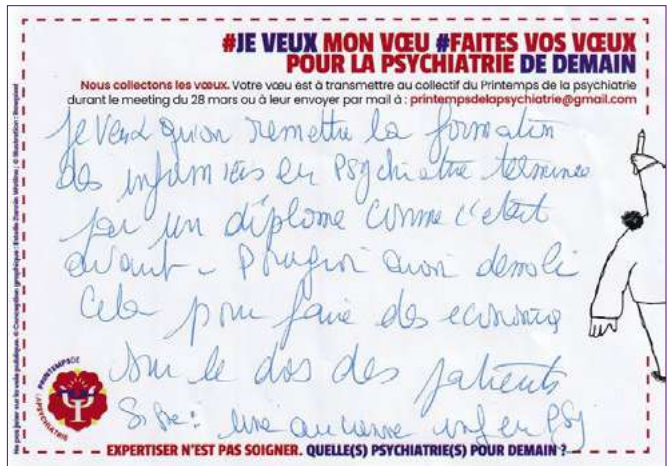 #JE VEUX MON VŒU #FAITES VOS VŒUX
POUR LA PSYCHIATRIE DE DEMAIN
Nous collectons les vœux. Votre vœu est à transmettre au collectif du Printemps de la psychiatrie
durant le meeting du 28 mars ou à leur envoyer par mail à : printempsdelapsychiatrie@gmail.com
je veux qu'on remette la formation
des infirmiers en psychiatrie terminée
par un diplome comme c'etait
avant - Pourquoi avoir demoli
cela pour faire des economies
sur le dos des patients
une ancienne inf en Psy
PRINTEMPS DE
LA PSYCHIATRIE
EXPERTISER N'EST PAS SOIGNER. QUELLE(S) PSYCHIATRIE(S) POUR DEMAIN ?
Ne pas jeter sur la voie publique. © Conception graphique : Estelle © Illustration :